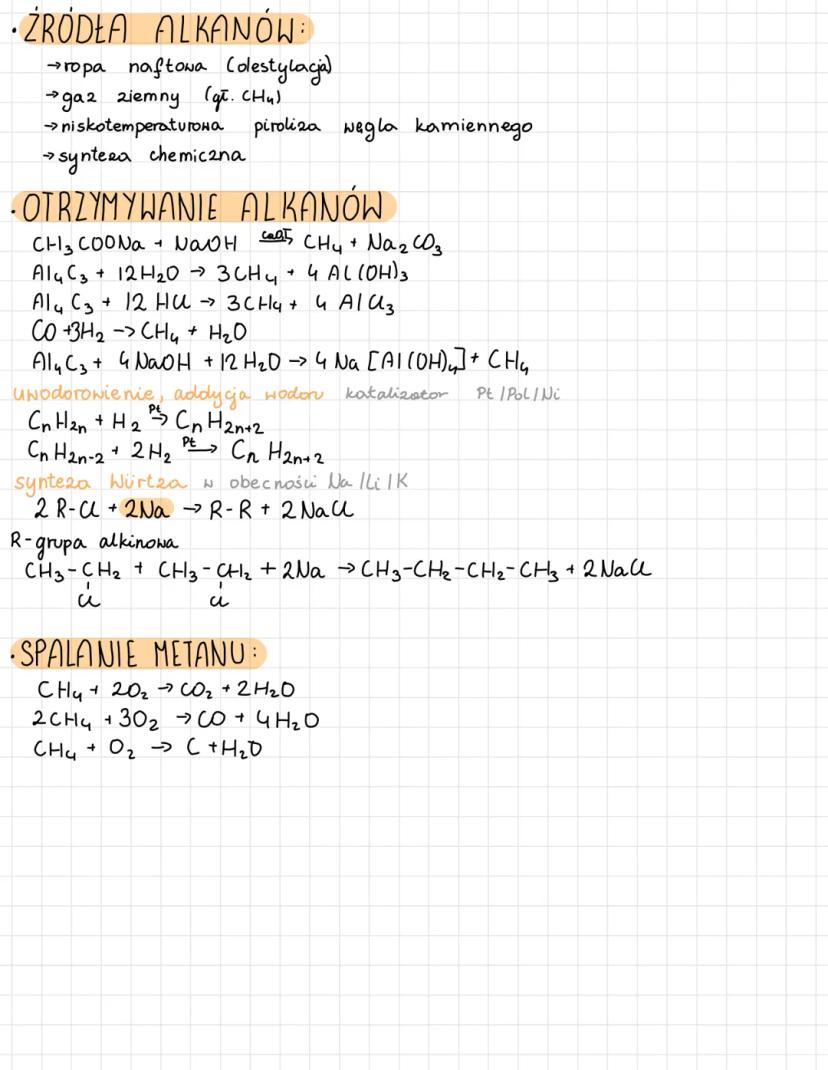 · ŹRÓDŁA ALKANÓW:
→ ropa naftowa (destylacja)
→ gaz ziemny (gł. CH₄)
→ niskotemperaturowa piroliza węgla kamiennego
→ synteza chemiczna
· OTRZYMYWANIE ALKANÓW
CH₃COONa + NaOH CaO,T→ CH₄ + Na₂CO₃
Al₄C₃ + 12H₂O → 3CH₄ + 4Al(OH)₃
Al₄C₃ + 12 HCl → 3CH₄ + 4 AlCl₃
CO + 3H₂ → CH₄ + H₂O
Al₄C₃ + 4NaOH + 12H₂O → 4Na[Al(OH)₄] + CH₄
uwodorowienie, addycja wodoru katalizator Pt / Pd / Ni
CnH2n + H₂ Pt→ CnH2n+2
CnH2n-2 + 2H₂ Pt→ CnH2n+2
synteza Würtza w obecności Na / Li / K
2 R-Cl + 2Na → R-R + 2NaCl
R-grupa alkinowa
CH₃-CH₂ + CH₃-CH₂ + 2Na → CH₃-CH₂-CH₂-CH₃ + 2NaCl
Cl Cl
· SPALANIE METANU:
CH₄ + 2O₂ → CO₂ + 2H₂O
2CH₄ + 3O₂ → CO + 4H₂O
CH₄ + O₂ → C + H₂O